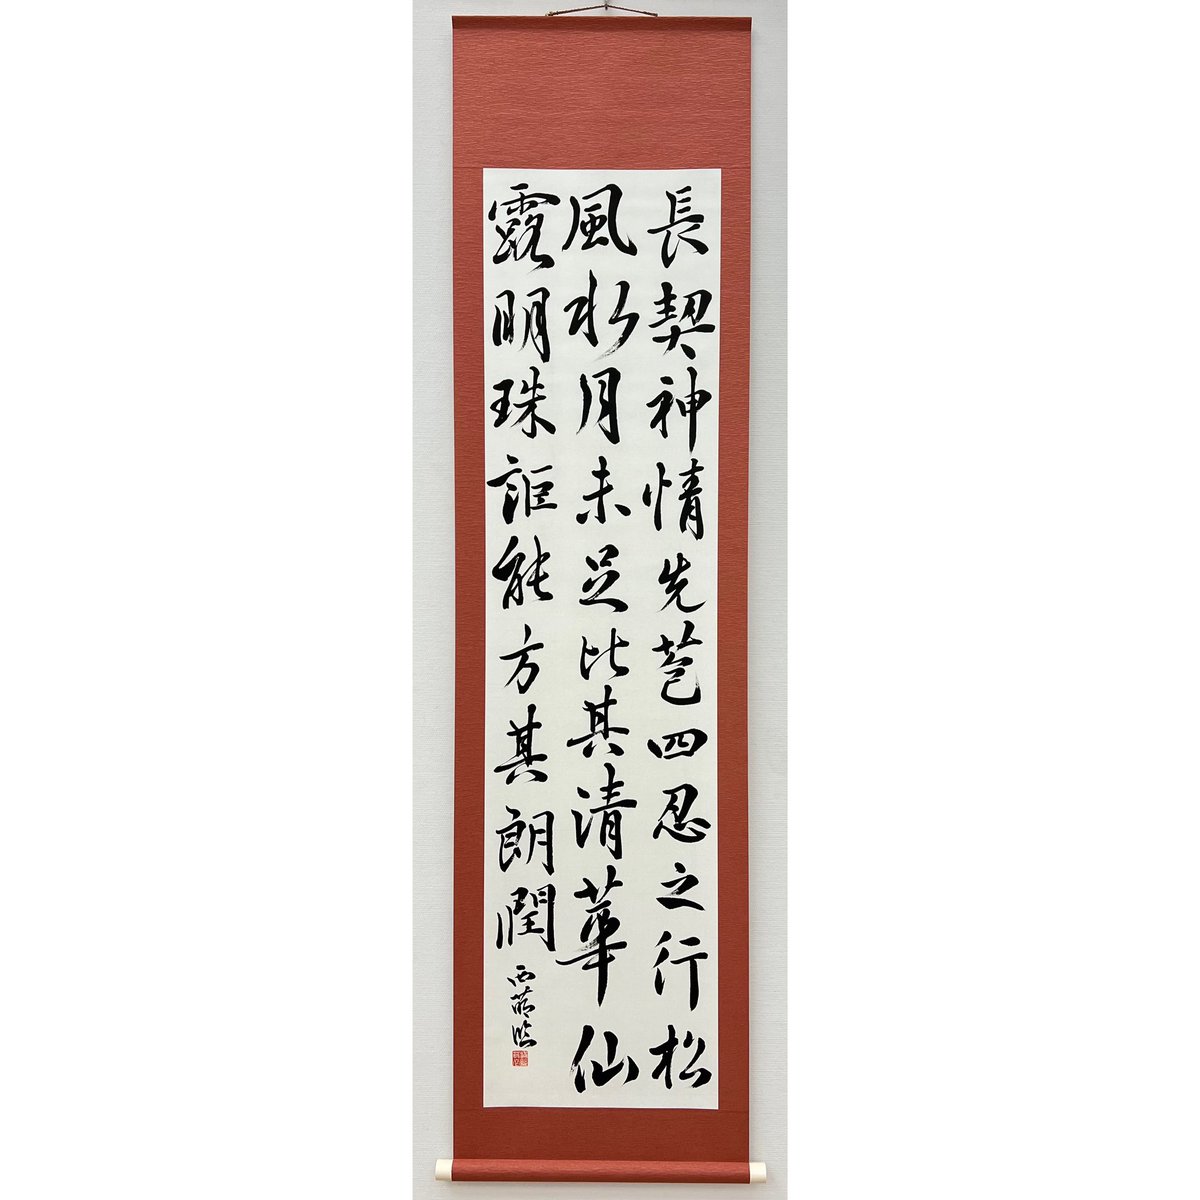 長契神情先苞四忍之行松
風水月未足比其清華仙
露明珠詎能方其朗潤
西臨